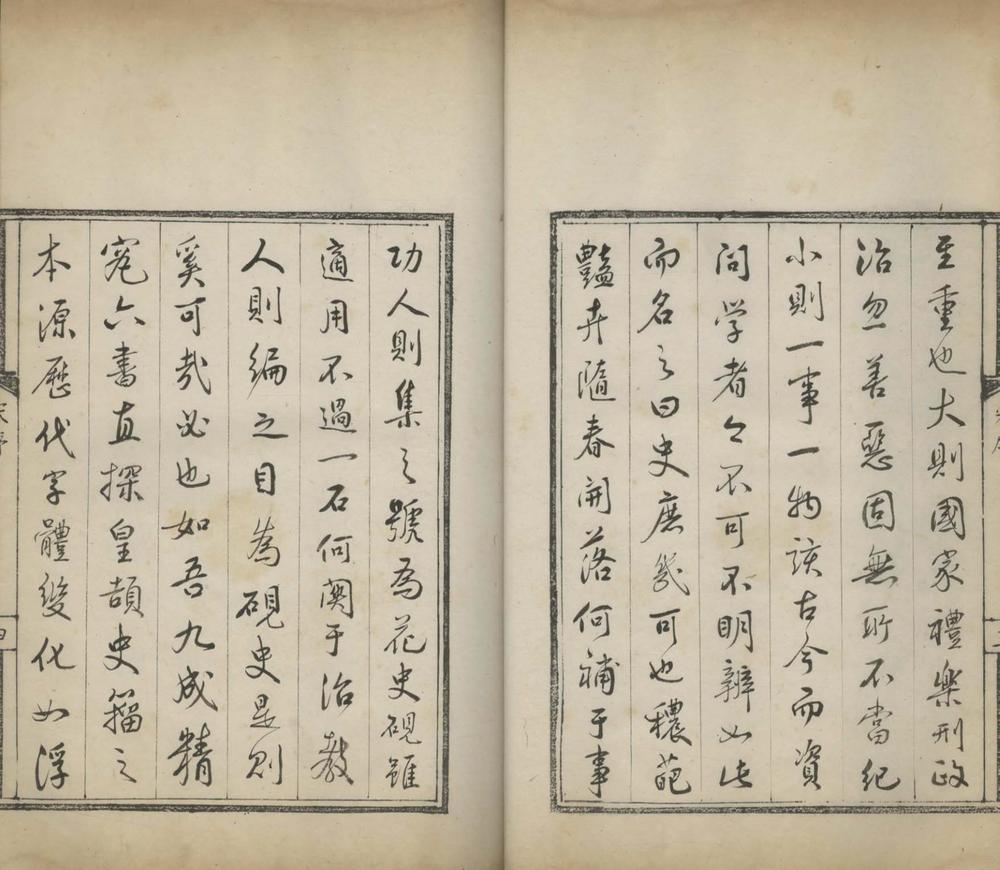 至重也大則國家禮樂刑政
治忽善惡固無所不當紀
小則一事一物該古今而資
問學者亦不可不明辨如此
而名之曰史庶幾可也穠葩
豔卉隨春開落何補于事
功人則集之號為花史硯雖
適用不過一石何關于治教
人則編之目為硯史是則
奚可哉必也如吾九成精
究六書直探皇頡史籀之
本源歷代字體變化如浮